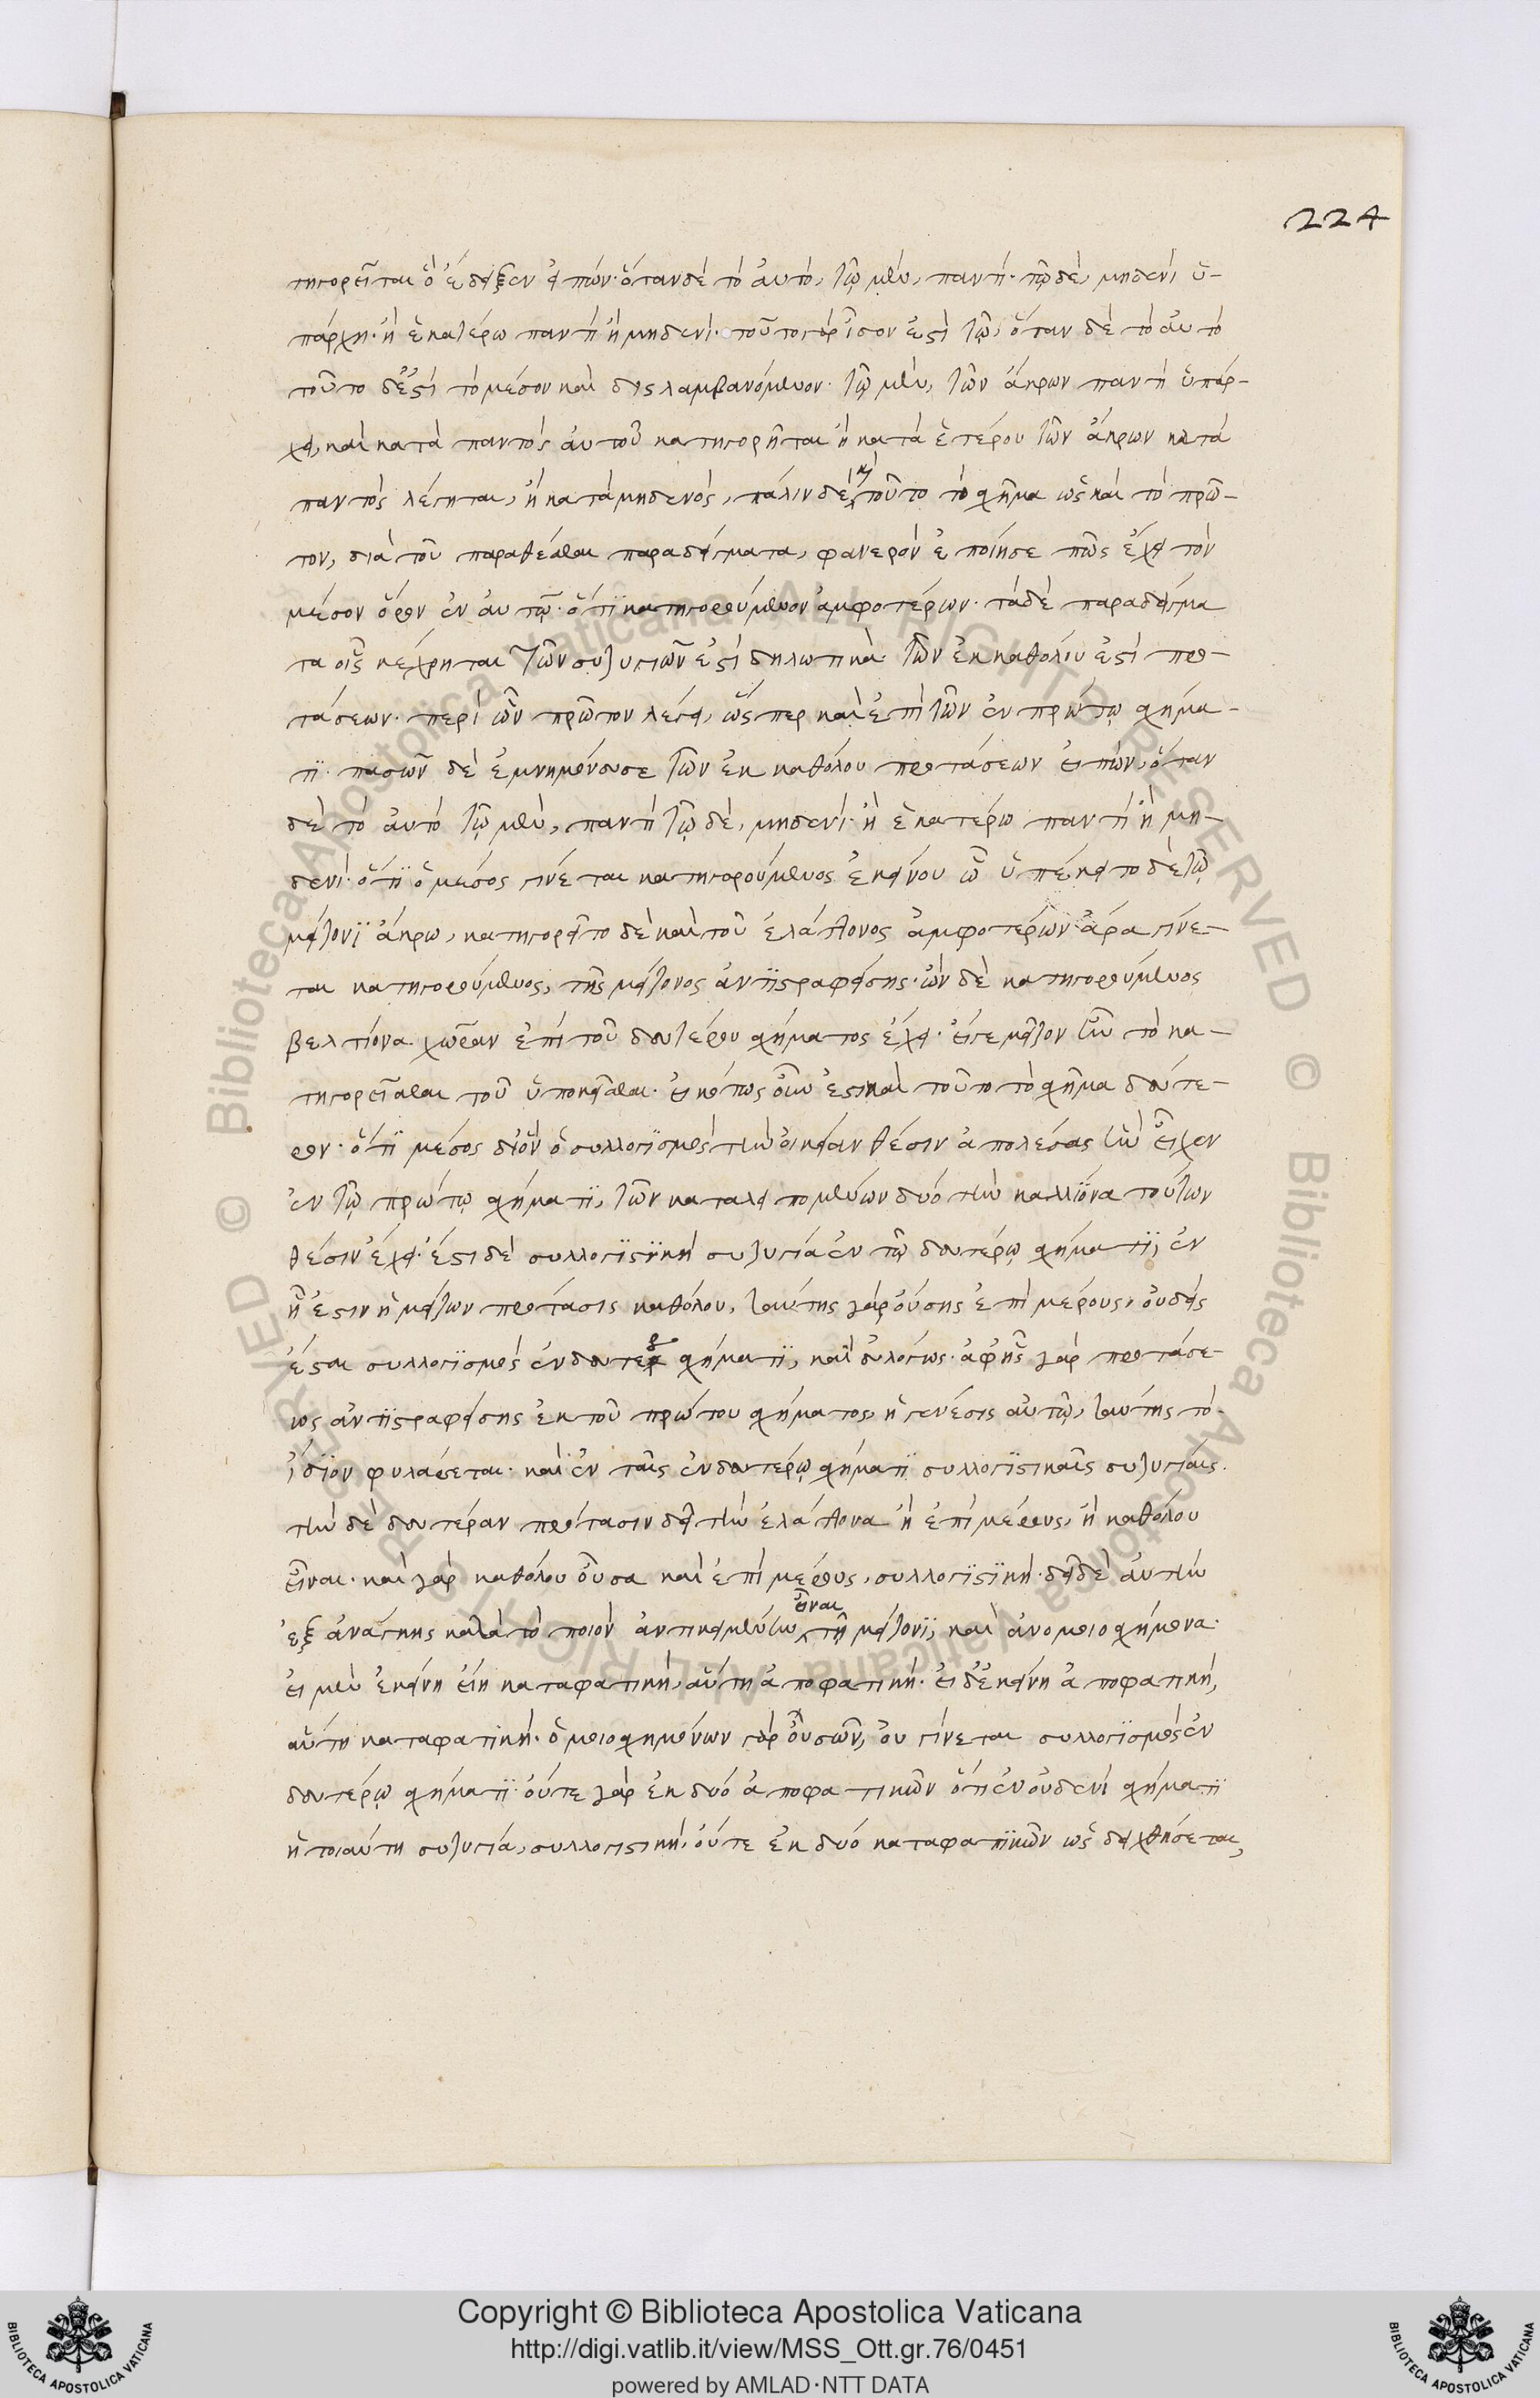 224
τηγορεῖται ὃ ἔδειξεν εἰπών· ὅταν δὲ τὸ ἀυτὸ, τῶ μὲν, παντὶ· τῶ δὲ, μηδενὶ ὑ-
πάρχη· ἢ ἑκατέρω παντὶ ἢ μηδενὶ· τοῦτο γὰρ ἴσον ἐστὶ τῶ, ὅταν δὲ τὸ ἀυτὸ
τοῦτο δέ ἐστι τὸ μέσον καὶ δὶς λαμβανόμενον· τῶ μὲν, τῶν ἄκρων παντὶ ὑπάρ-
χει, καὶ κατὰ παντὸς ἀυτοῦ κατηγορῆται ἢ κατὰ ἑτέρου τῶν ἄκρων κατὰ
παντὸς λέγηται, ἢ κατὰ μηδενὸς, πάλιν δὲ καὶ τοῦτο τὸ σχῆμα ὡς καὶ τὸ πρῶ-
τον, διὰ τοῦ παραθέσθαι παραδείγματα, φανερὸν ἐποίησε πῶς ἔχει τὸν
μέσον ὅρον ἐν ἀυτῶ· ὅτι κατηγορούμενον ἀμφοτέρων· τὰ δὲ παραδείγμα
τα οἷς κέχρηται τῶν συζυγιῶν ἐστὶ δηλωτικὰ τῶν ἐκ καθόλου ἐστὶ προ-
τάσεων· περὶ ὧν πρῶτον λέγει, ὥσπερ καὶ ἐπὶ τῶν ἐν πρώτω σχήμα-
τι· πασῶν δὲ ἐμνημόνευσε τῶν ἐκ καθόλου προτάσεων εἰπών, ὅταν
δὲ τὸ ἀυτὸ τῶ μὲν, παντὶ τῶ δὲ, μηδενὶ· ἢ ἑκατέρω παντὶ ἢ μη-
δενὶ· ὅτι ὁ μέσος γίνεται κατηγορούμενος ἐκείνου ὧ ὑπέκειτο δὲ τῶ
μείζονι ἄκρω, κατηγορεῖτο δὲ καὶ τοῦ ἐλάττονος ἀμφοτέρων ἄρα γίνε-
ται κατηγορούμενος, τῆς μείζονος ἀντιστραφείσης· ὢν δὲ κατηγορούμενος
βελτίονα χώραν ἐπὶ τοῦ δευτέρου σχήματος ἔχει· εἴγε μεῖζον ἦν τὸ κα-
τηγορεῖσθαι τοῦ ὑποκεῖσθαι· εἰκότως οὖν ἐστι καὶ τοῦτο τὸ σχῆμα δεύτε-
ρον· ὅτι μέσος δι' ὃν ὁ συλλογισμὸς τὴν οἰκείαν θέσιν ἀπολέσας ἣν εἶχεν
ἐν τῶ πρώτω σχήματι, τῶν καταλειπομένων δυό τὴν καλλίονα τούτων
θέσιν ἔχει· ἔστι δὲ συλλογιστικὴ συζυγία ἐν τῶ δευτέρω σχήματι, ἐν
ἧ ἐστιν ἡ μείζων πρότασις καθόλου, ταύτης γὰρ οὔσης ἐπὶ μέρους, οὐδεὶς
ἔσται συλλογισμὸς ἐν δευτέρω σχήματι, καὶ εὐλόγως· ἀφ' ἧς γὰρ προτάσε-
ως ἀντιστραφείσης ἐκ τοῦ πρώτου σχήματος, ἡ γενέσις αὐτῶ, ταύτης τὸ
ἴδιον φυλάσσεται· καὶ ἐν ταῖς ἐν δευτέρω σχήματι συλλογιστικαῖς συζυγίαις·
τὴν δὲ δευτέραν πρότασιν δεῖ τὴν ἐλάττονα ἢ ἐπὶ μέρους, ἢ καθόλου
εἶναι· καὶ γὰρ καθόλου οὖσα καὶ ἐπὶ μέρους, συλλογιστικὴ· δεῖ δὲ ἀυτὴν
ἐξ ἀνάγκης κατὰ τὸ ποιὸν ἀντικειμένην εἶναι τῆ μείζονι, καὶ ἀνομοιοσχήμονα·
εἰ μὲν ἐκείνη εἴη καταφατικὴ, αὕτη ἀποφατικὴ· εἰ δ' ἐκείνη ἀποφατικὴ,
αὕτη καταφατικὴ· ὁμοιοσχημόνων γὰρ οὐσῶν, οὐ γίνεται συλλογισμὸς ἐν
δευτέρω σχήματι· οὔτε γὰρ ἐκ δυό ἀποφατικῶν ὅτι ἐν οὐδενὶ σχήματι
ἡ τοιαύτη συζυγία, συλλογιστικὴ, οὔτε ἐκ δυό καταφατικῶν ὡς δειχθήσεται,
Copyright © Biblioteca Apostolica Vaticana
http://digi.vatlib.it/view/MSS_Ott.gr.76/0451
powered by AMLAD·NTT DATA